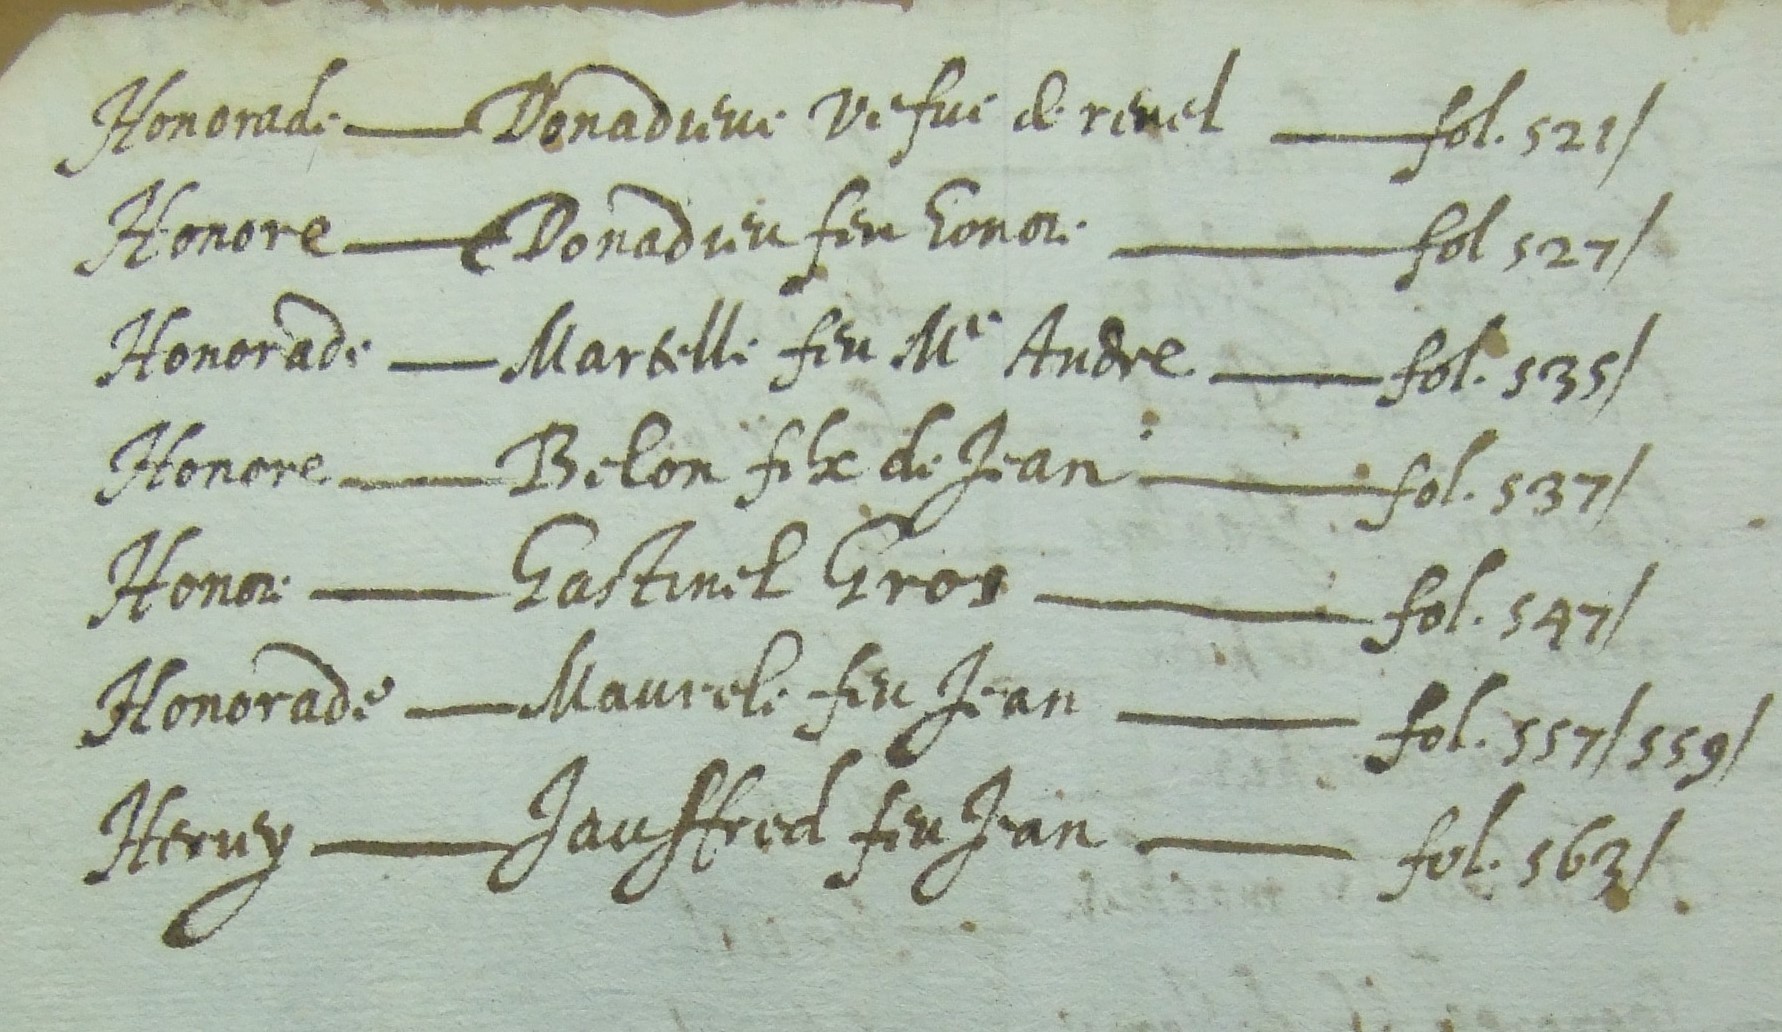 Honorade — Donadieue vefue de reuel — fol. 521/
Honore — Donadieu feu honor — fol 527/
Honorade — Martelle feu Me Andre — fol. 535/
Honore — Belon filx de Jean — fol. 537/
Honor — Gastinel Gros — fol. 547/
Honorade — Maurele feu Jean — fol. 557/559/
Heruy — Jauffred feu Jean — fol. 563/